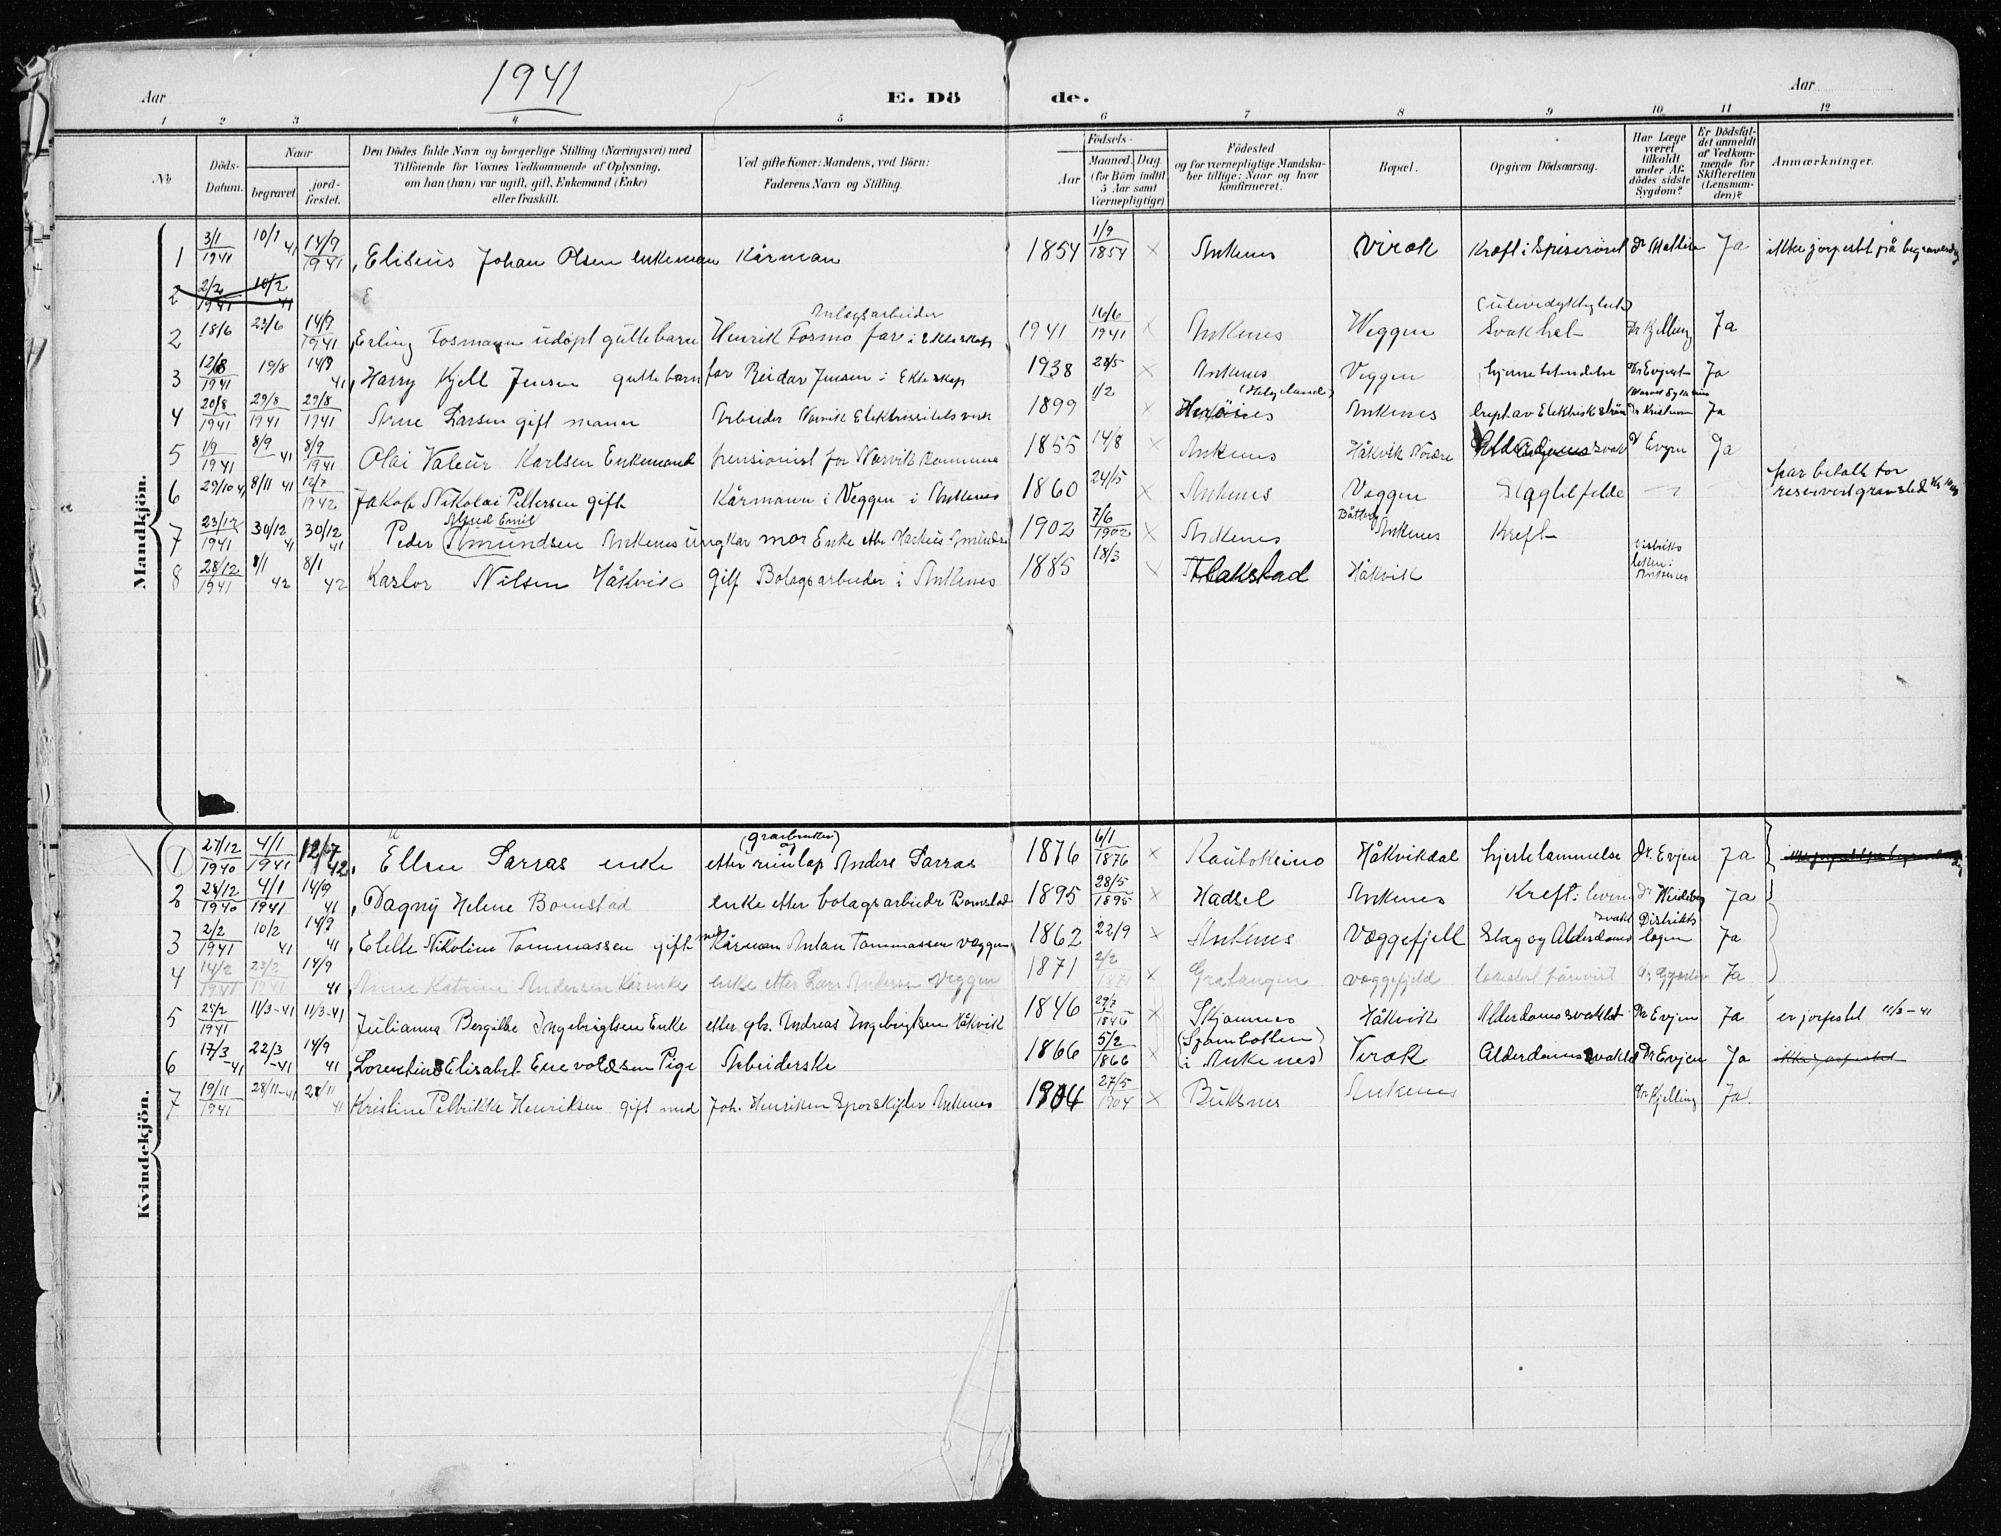 1941
Aar E. Dö de. Aar
1 2 3 4 5 6 7 8 9 10 11 12
No
Döds-Datum.
Naar
begravet
jord-fæstet.
Den Dödes fulde Navn og borgerlige Stilling (Næringsvei) med
Tilföiende for Voxnes Vedkommende af Oplysning,
om han (hun) var ugift, gift, Enkemand (Enke)
eller fraskilt.
Ved gifte Koner: Mandens, ved Börn:
Faderens Navn og Stilling.
Födsels-
Aar
Maaned. Dag
(for Börn indtil 5 Aar samt Værnepligtige)
Födested
og for værnepligtige Mandska-
ber tillige: Naar og hvor
konfirmeret.
Bopæl.
Opgiven Dödsaarsag.
Har Læge været tilkaldt under Afdödes sidste Sygdom?
Er Dödsfaldet anmeldt af Vedkommende for Skifteretten (Lensmanden)?
Anmærkninger.
Mandkjön.
1 3/1 1941 10/1 41 14/9 1941 Eliseus Johan Olsen enkeman Kårman 1854 1/9 1854 × Ankenes Virak Kræft i Spiserøret Dr Mattise Ja ikke jorfestet på begravelsdag
2 2/2 1941 10/2 41
2 18/6 23/6 14/9 1941 Erling Fosmann udøpt guttebarn Henrik Fosmo far i Ekteskap Anlagsarbeider 1941 16/6 1941 × Ankenes Veggen Svakhet Dr Kjelling Ja
3 12/8 1941 19/8 14/9 41 Harry Kjell Jensen guttebarn far Reidar Jensen i Ekteskap 1938 28/5 Ankenes Veggen hjernebetendelse Dr Evjen Ja
4 20/8 1941 29/8 1941 29/8 1941 Arne Larsen gift mann Arbeider Narvik Elektrisitetsverk 1899 1/2 × (Helgeland) Ankenes Drept av Elektrisk strøm Ja
5 1/9 1941 8/9 41 8/9 1941 Olai Valeur Karlsen Enkemand pensionist for Narvik Kommune 1855 14/8 × Ankenes Håkvik Nordre Dr Evjen Ja
6 29/10 41 8/11 41 12/7 1942 Jakob Nikolai Pettersen gift Kårmann i Veggen i Ankenes 1860 24/5 × Ankenes Veggen Slagtilfelde har betalt for reservert gravsted
7 23/12 1941 30/12 41 30/12 41 Peder Alfred Emil Amundsen Ankenes ungkar mor Enke etter 1902 7/6 1902 × Ankenes Ankenes Kreft
8 28/12 1941 8/1 42 8/1 42 Karlor Nilsen Håkvik gift Bolagsarbeider i Ankenes 1885 18/3 × Flakstad Håkvik Distriktslegen i Ankenes
Kvindekjön.
1 27/12 1940 4/1 1941 12/7 42 Ellen Sarras enke etter reinlap Anders Sarras 1876 6/1 1876 × Kautokeino Håkvikdal hjertelammelse Dr. Evjen Ja
2 24/12 1940 4/1 1941 14/9 41 Dagny Helene Bomstad enke etter bolagsarbeider Bomstad 1895 28/5 1895 × Hadsel Ankenes Kreft i leveren Dr Heideberg Ja
3 2/2 1941 10/2 41 14/9 41 Elelle Nikoline Tommassen gift med Kårman Antan Tommassen Veggen 1862 22/9 × Ankenes Væggefjell Slag og Alderdomssvakt Distriktslegen Ja
4 14/2 1941 23/2 1941 14/9 41 Anne Katrine Andersen Kårenke enke etter Lars Andersen Veggen 1871 2/2 1871 × Gratangen Væggefjeld Ja
5 25/2 1941 11/3-41 11/3-41 Julianna Bergitte Ingebrigtsen Enke etter gbr. Andreas Ingebrigtsen Håkvik 1846 29/7 1846 × Skjomnes Håkvik Alderdomssvakhet Dr Evjen Ja er jorfestet 11/3-41
6 17/3 -41 22/3 -41 14/9 41 Lorentine Elisabet Enevoldsen Pige Arbeiderske 1866 5/2 1866 × i Ankenes) Virak Alderdomssvakhet Dr Evjen Ja ikke jorfestet
7 19/11 1941 28/11-41 28/11 41 Kristine Petrikke Henriksen gift med Joh. Henriksen Sporskifter Ankenes 1904 27/5 1904 × Buksnes Ankenes Dr Kjelling Ja